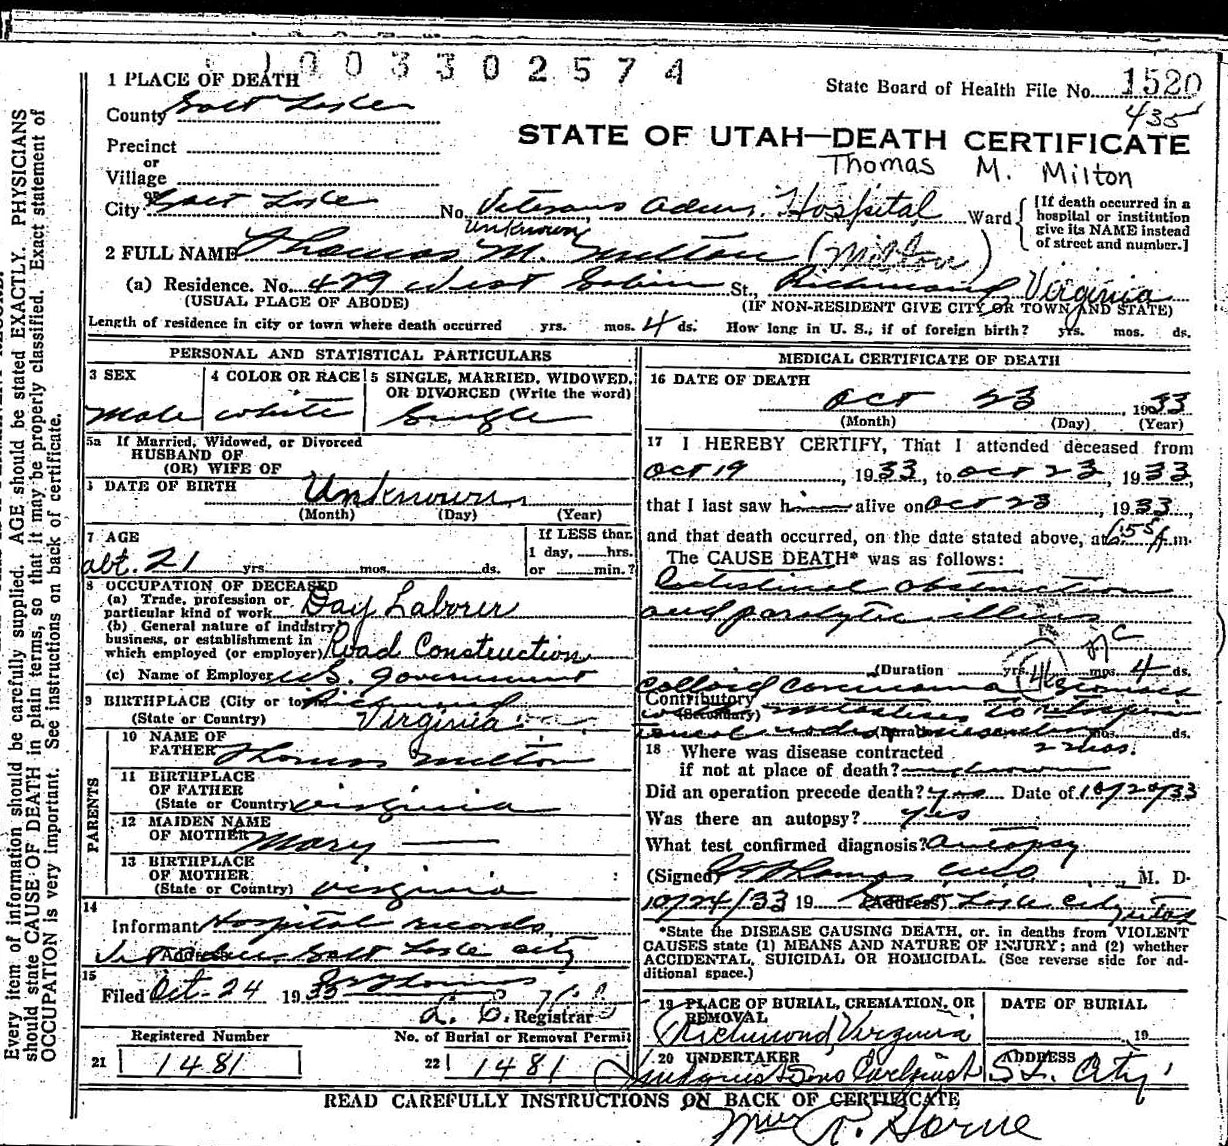 1003302574
1 PLACE OF DEATH
State Board of Health File No. 1520
435
County Salt Lake
STATE OF UTAH—DEATH CERTIFICATE
Precinct
or
Village
Thomas M. Milton
or
City Salt Lake No. Veterans Adm. Hospital Ward
[If death occurred in a
hospital or institution
give its NAME instead
of street and number.]
unknown
2 FULL NAME Thomas M. Milton (Milton)
(a) Residence. No. 479 West St., Richmond Virginia
(USUAL PLACE OF ABODE) (IF NON-RESIDENT GIVE CITY OR TOWN AND STATE)
Length of residence in city or town where death occurred yrs. mos. 4 ds. How long in U. S., if of foreign birth? yrs. mos. ds.
PERSONAL AND STATISTICAL PARTICULARS
3 SEX
Male
4 COLOR OR RACE
white
5 SINGLE, MARRIED, WIDOWED,
OR DIVORCED (Write the word)
Single
5a If Married, Widowed, or Divorced
HUSBAND OF
(OR) WIFE OF
DATE OF BIRTH Unknown
(Month) (Day) (Year)
7 AGE
abt. 21 yrs. mos. ds.
If LESS than
1 day, hrs.
or min.?
8 OCCUPATION OF DECEASED
(a) Trade, profession or
particular kind of work Day Laborer
(b) General nature of industry
business, or establishment in
which employed (or employer) Road Construction
(c) Name of Employer U.S. Government
9 BIRTHPLACE (City or to Richmond
(State or Country) Virginia
PARENTS
10 NAME OF
FATHER Thomas Milton
11 BIRTHPLACE
OF FATHER
(State or Country) Virginia
12 MAIDEN NAME
OF MOTHER Mary
13 BIRTHPLACE
OF MOTHER
(State or Country) Virginia
14
Informant Hospital records
(Address) Salt Lake City
15
Filed Oct. 24 1933
Registrar
Registered Number
21 1481
No. of Burial or Removal Permit
22 1481
MEDICAL CERTIFICATE OF DEATH
16 DATE OF DEATH
Oct 23, 1933
(Month) (Day) (Year)
17 I HEREBY CERTIFY, That I attended deceased from
Oct 19, 1933, to Oct 23, 1933,
that I last saw h alive on Oct 23, 1933,
and that death occurred, on the date stated above, at 6:55 A.m.
The CAUSE DEATH* was as follows:
Intestinal obstruction
and paralytic illeus
(Duration yrs. 46 mos. 4 ds.
Colloid Carcinoma
Contributory
(Secondary) metastases to
(Duration mos. ds.
2 mos.
18 Where was disease contracted
if not at place of death? unknown
Did an operation precede death? yes Date of 10/20/33
Was there an autopsy? yes
What test confirmed diagnosis? Autopsy
(Signed) Thomas M. D.
10/24/33 19 (Address) Salt Lake City Utah
*State the DISEASE CAUSING DEATH, or, in deaths from VIOLENT
CAUSES state (1) MEANS AND NATURE OF INJURY; and (2) whether
ACCIDENTAL, SUICIDAL OR HOMICIDAL. (See reverse side for ad-
ditional space.)
19 PLACE OF BURIAL, CREMATION, OR
REMOVAL
Richmond, Virginia
DATE OF BURIAL
19
20 UNDERTAKER
ADDRESS
S.L. City
READ CAREFULLY INSTRUCTIONS ON BACK OF CERTIFICATE
R. Horne
Every item of information should be carefully supplied. AGE should be stated EXACTLY. PHYSICIANS
should state CAUSE OF DEATH in plain terms, so that it may be properly classified. Exact statement of
OCCUPATION is very important. See instructions on back of certificate.